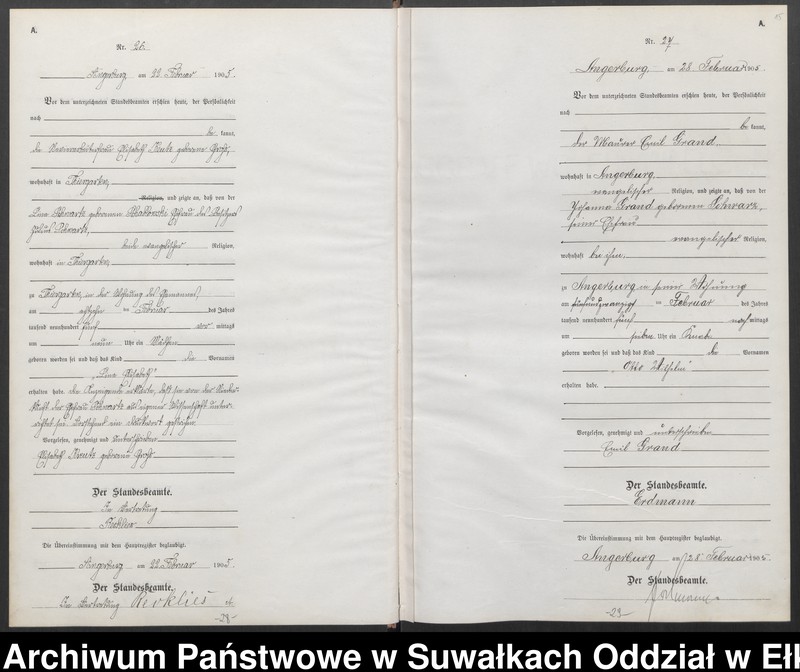 A.
Nr. 26.
Angerburg am 22. Februar 1905.
Vor dem unterzeichneten Standesbeamten erschien heute, der Persönlichkeit
nach
be kannt,
die Elisabeth geborene
wohnhaft in Thiergarten,
Religion, und zeigte an, daß von der
Schwartz geborenen Ehefrau des
Schwartz,
beide evangelischer Religion,
wohnhaft in Thiergarten,
zu Thiergarten, in der Wohnung des Ehemannes,
am Februar des Jahres
tausend neunhundert fünf vor mittags
um neun Uhr ein Mädchen
geboren worden sei und daß das Kind die Vornamen
Elisabeth"
erhalten habe. Die Anzeigende erklärte, daß sie von der Nieder-
kunft der Schwartz aus eigener Wissenschaft unter-
richtet sei.
Vorgelesen, genehmigt und unterschrieben
Elisabeth geborene
Der Standesbeamte.
In Vertretung
Die Übereinstimmung mit dem Hauptregister beglaubigt.
Angerburg am 22. Februar 1905.
Der Standesbeamte.
In Vertretung
-28-
A.
Nr. 27
Angerburg, am 28. Februar 1905.
Vor dem unterzeichneten Standesbeamten erschien heute, der Persönlichkeit
nach
be kannt,
der Maurer Emil Grand
wohnhaft in Angerburg
evangelischer Religion, und zeigte an, daß von der
Johanna Grand geborenen Schwarz,
seiner Ehefrau
evangelischer Religion,
wohnhaft bei ihm,
zu Angerburg in seiner Wohnung
am fünfundzwanzigsten Februar des Jahres
tausend neunhundert fünf nach mittags
um sieben Uhr ein Knabe
geboren worden sei und daß das Kind die Vornamen
„Otto Wilhelm"
erhalten habe.
Vorgelesen, genehmigt und unterschrieben
Emil Grand
Der Standesbeamte.
Erdmann
Die Übereinstimmung mit dem Hauptregister beglaubigt.
Angerburg am 28. Februar 1905.
Der Standesbeamte.
Erdmann
-29-
Archiwum Państwowe w Suwałkach Oddział w Eł